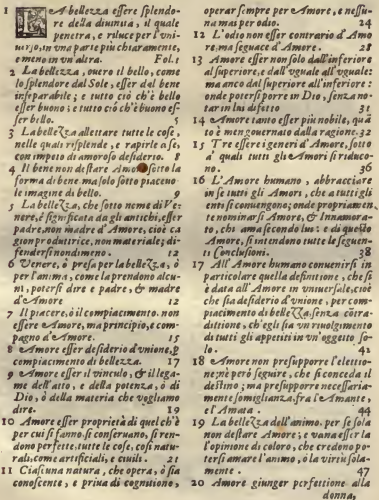 1 LA bellezza essere splendo-
re della diuinità, il quale
penetra, e riluce per l'vni-
uerso, in vna parte più chiaramente,
e meno in vn'altra. Fol. 1
2 La bellezza, ouero il bello, come
lo splendore dal Sole, esser dal bene
inseparabile; e tutto ciò ch'è bello
esser buono; e tutto ciò ch'è buono es-
ser bello. 5
3 La bellezza allettare tutte le cose,
nelle quali risplende, e rapirle a se,
con impeto di amoroso desiderio. 8
4 Il bene non destare Amore sotto la
forma di bene, ma solo sotto piaceuo-
le imagine di bello. 9
5 La bellezza, che sotto nome di Ve-
nere, è significata da gli antichi, esser
padre, non madre d'Amore, cioè ca
gion produttrice, non materiale; di-
fendersi nondimeno. 12
6 Venere, ò presa per la bellezza, ò
per l'anima, come la prendono alcu-
ni, potersi dire e padre, & madre
d'Amore 12
7 Il piacere, ò il compiacimento, non
essere Amore, ma principio, e com-
pagno d'Amore. 15
8 Amore esser desiderio d'vnione, p
compiacimento di bellezza. 17
9 Amore esser il vinculo, & il lega-
me dell'atto, e della potenza, ò di
Dio, ò della materia che vogliamo
dire. 19
10 Amore esser proprietà di quel ch'è
per cui si fanno, si conseruano, si ren-
dono perfette, tutte le cose, così natu-
rali, come artificiali, e ciuili. 21
11 Ciascuna natura, che opera, ò sia
conoscente, e priua di cognitione,
operar sempre per Amore, e nessu-
na mai per odio. 24
12 L'odio non esser contrario d'Amo
re, ma seguace d'Amore. 28
13 Amore esser non solo dall'inferiore
al superiore, e dall'vguale all'vguale:
ma anco dal superiore all'inferiore:
onde potersi porre in Dio, senza no-
tar in lui difetto 31
14 Amore tanto esser più nobile, quā
to è men gouernato dalla ragione. 32
15 Tre essere i generi d'Amore, sotto
a' quali tutti gli Amori si riduco-
no. 36
16 L'Amore humano, abbracciare
in se tutti gli Amori, che a tutti gli en
ti si conuengono; onde propriamen-
te nominarsi Amore, & Innamora-
to, chi ama secondo lui: e di questo
Amore, si intendono tutte le seguen-
ti Conclusioni. 38
17 All'Amore humano conuenirsi in
particolare quella definitione, che si
è data all'Amore in vniuersale, cioè
che sia desiderio d'vnione, per com-
piacimento di bellezza, senza cōtra-
dittione, ch'egli sia vn riuolgimento
di tutti gli appetiti in vn'oggetto so-
lo. 41
18 Amore non presupporre l'elettio-
ne; nè però seguire, che si conceda il
destino; ma presupporre necessaria-
mente somiglianza, fra l'Amante,
e l'Amata. 44
19 La bellezza dell'animo, per se sola
non destare Amore; e vana esser la
l'opinione di coloro, che credono po-
tersi amare l'animo, ò la virtù sola-
mente. 47
20 Amore giunger perfettione alla
donna,